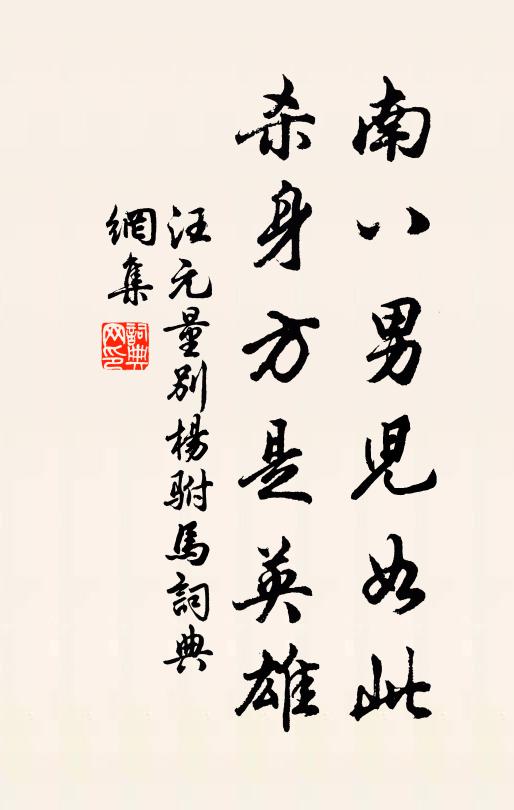 南八男児如此
杀身方是英雄
汪元量别楊駙馬詞典
網集
詞典网印